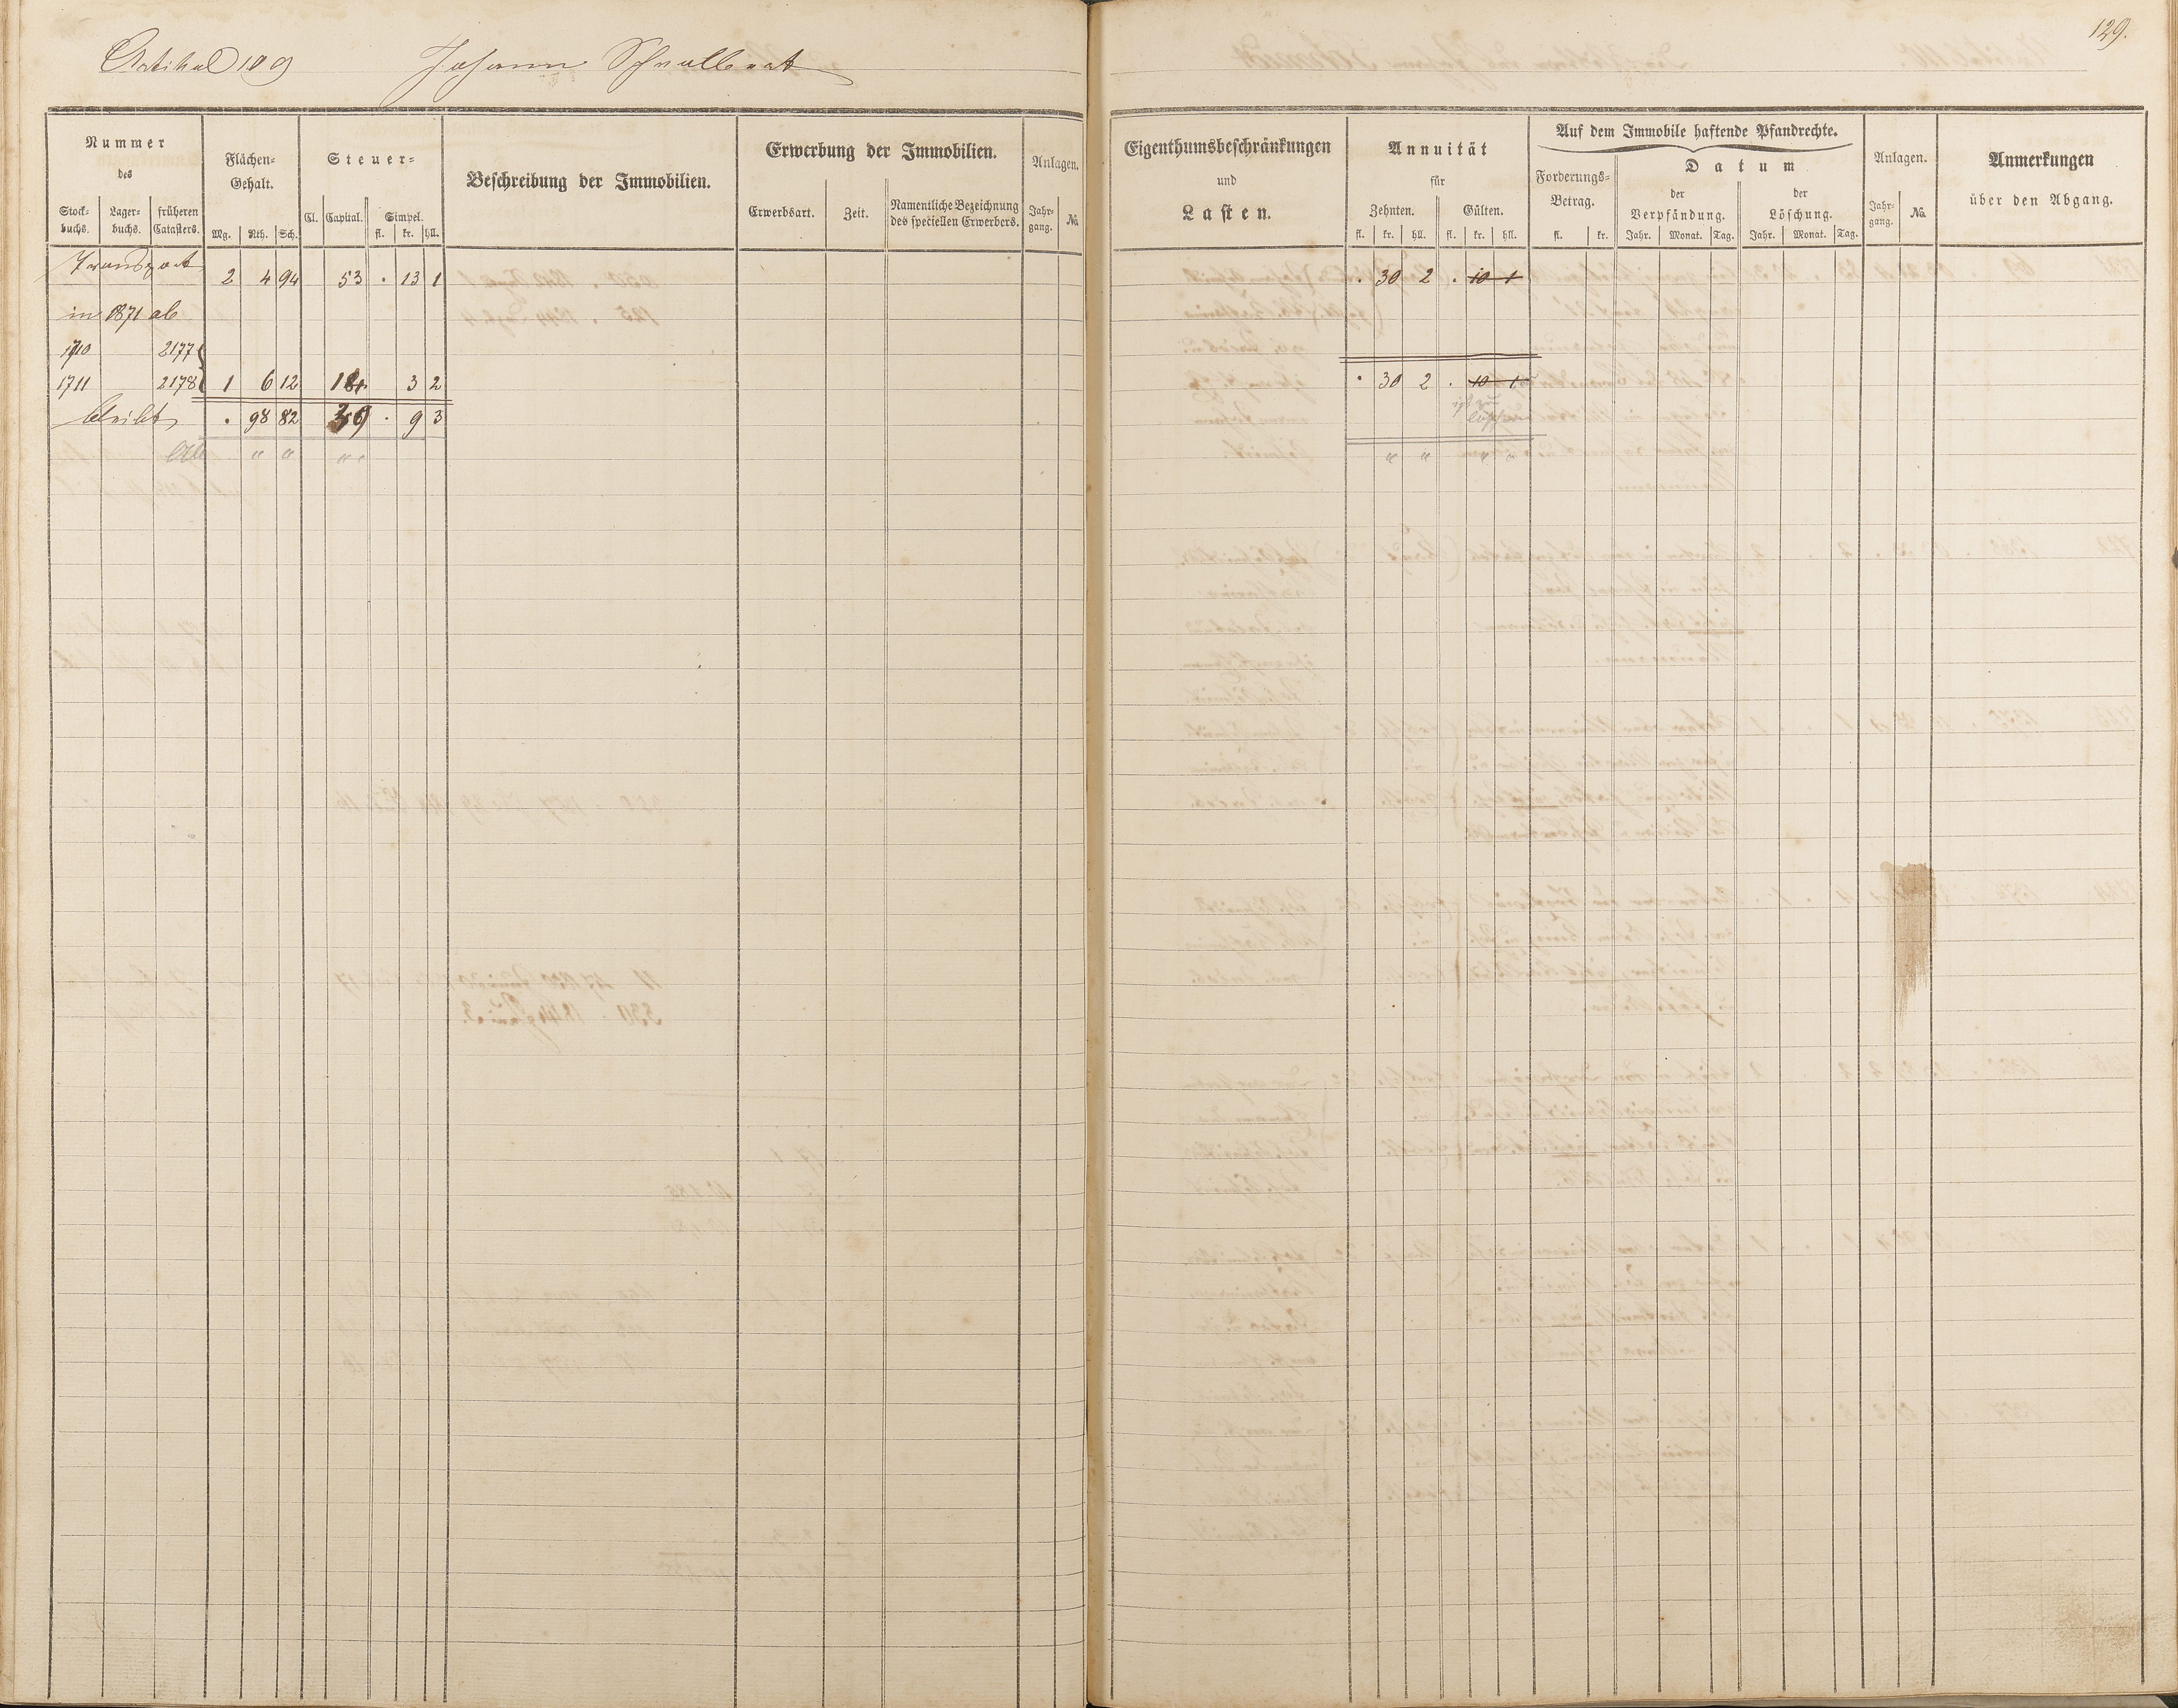 129.
Artikel 109 Johann Schnellbart
Nummer
des
Stock-
buchs.
Lager-
buchs.
früheren
Catasters.
Flächen-
Gehalt.
Mg. Rth. Sch.
Steuer-
Cl. Capital. Simpel.
fl. kr. hll.
Beschreibung der Immobilien.
Erwerbung der Immobilien.
Erwerbsart. Zeit. Namentliche Bezeichnung
des speciellen Erwerbers.
Anlagen.
Jahr-
gang.
No.
Eigenthumsbeschränkungen
und
Lasten.
Annuität
für
Zehnten. Gülten.
fl. kr. hll. fl. kr. hll.
Auf dem Immobile haftende Pfandrechte.
Forderungs-
Betrag.
fl. kr.
Datum
der
Verpfändung.
Jahr. Monat. Tag.
der
Löschung.
Jahr. Monat. Tag.
Anlagen.
Jahr-
gang.
No.
Anmerkungen
über den Abgang.
Transport 2 4 94 53 . 13 1 . 30 2 . 10 1
in 1871 ab
1710 2177
1711 2178 1 6 12 3 2 . 30 2 . 10 1
bleibt . 98 82 39 . 9 3
" " " " " " "